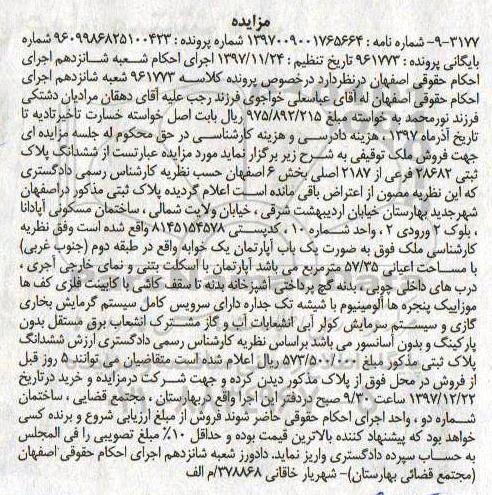 مزایده
۹-۳۱۷۷- شماره نامه : ۱۳۹۷۰۰۹۰۰۱۷۶۵۶۶۴ شماره پرونده : ۹۶۰۹۹۸۶۸۲۵۱۰۰۴۲۳ شماره
بایگانی پرونده : ۹۶۱۷۷۳ تاریخ تنظیم : ۱۳۹۷/۱۱/۲۴ اجرای احکام شعبه شانزدهم اجرای
احکام حقوقی اصفهان درنظردارد درخصوص پرونده کلاسه ۹۶۱۷۷۳ شعبه شانزدهم اجرای
احکام حقوقی اصفهان له آقای عباسعلی خواجوی فرزند رجب علیه آقای دهقان مرادیان دشتکی
فرزند نورمحمد به خواسته مبلغ ۹۷۵/۸۹۲/۲۱۵ ریال بابت اصل خواسته خسارت تاخیرتادیه تا
تاریخ آذرماه ۱۳۹۷ ، هزینه دادرسی و هزینه کارشناسی در حق محکوم له جلسه مزایده ای
جهت فروش ملک توقیفی به شرح زیر برگزار نماید مورد مزایده عبارتست از ششدانگ پلاک
ثبتی ۲۸۶۸۲ فرعی از ۲۱۸۷ اصلی بخش ۶ اصفهان حسب نظریه کارشناس رسمی دادگستری
که این نظریه مصون از اعتراض باقی مانده است اعلام گردیده پلاک ثبتی مذکور دراصفهان
شهرجدید بهارستان خیابان اردیبهشت شرقی ، خیابان ولایت شمالی ، ساختمان مسکونی آپادانا
، بلوک ۲ ورودی ۲ ، واحد شماره ۱۰ ، کدپستی ۸۱۴۵۱۵۴۵۷۸ واقع شده است وفق نظریه
کارشناسی ملک فوق به صورت یک باب آپارتمان یک خوابه واقع در طبقه دوم (جنوب غربی)
با مساحت اعیانی ۵۷/۳۵ مترمربع می باشد آپارتمان با اسکلت بتنی و نمای خارجی آجری ،
درب های داخلی چوبی ، بدنه گچ پرداختی آشپزخانه بدنه تاسقف کاشی با کابینت فلزی کف ها
موزاییک پنجره ها آلومینیوم با شیشه تک جداره دارای سرویس کامل سیستم گرمایش بخاری
گازی و سیستم سرمایش کولر آبی انشعابات آب و گاز مشترک انشعاب برق مستقل بدون
پارکینگ و بدون آسانسور می باشد براساس نظریه کارشناس رسمی دادگستری ارزش ششدانگ
پلاک ثبتی مذکور مبلغ ۵۷۳/۵۰۰/۰۰۰ ریال اعلام شده است متقاضیان می توانند ۵ روز قبل
از فروش در محل فوق از پلاک مذکور دیدن کرده و جهت شرکت درمزایده و خرید درتاریخ
۱۳۹۷/۱۲/۲۲ ساعت ۹/۳۰ صبح دردفتر این اجرا واقع دربهارستان ، مجتمع قضایی ، ساختمان
شماره دو ، واحد اجرای احکام حقوقی حاضر شوند فروش از مبلغ ارزیابی شروع و برنده کسی
خواهد بود که پیشنهاد کننده بالاترین قیمت بوده و حداقل ۱۰٪ مبلغ تصویبی را فی المجلس
به حساب سپرده دادگستری واریز نماید. دادورز شعبه شانزدهم اجرای احکام حقوقی اصفهان
(مجتمع قضائی بهارستان)- شهریار خاقانی ۳۷۸۸۶۸/م الف